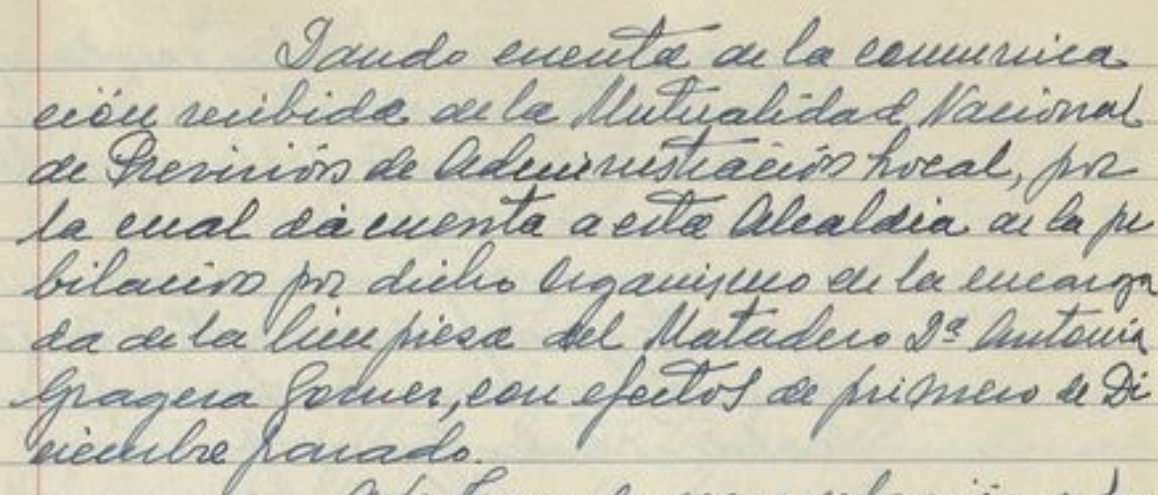 Dando cuenta de la comunica
ción recibida de la Mutualidad Nacional
de Previsión de Administración Local, por
la cual da cuenta a esta Alcaldia de la ju
bilación por dicho Organismo de la encarga
da de la limpiesa del Matadero Dª Antonia
Gragera Gomez, con efectos de primero de Di
ciembre pasado.